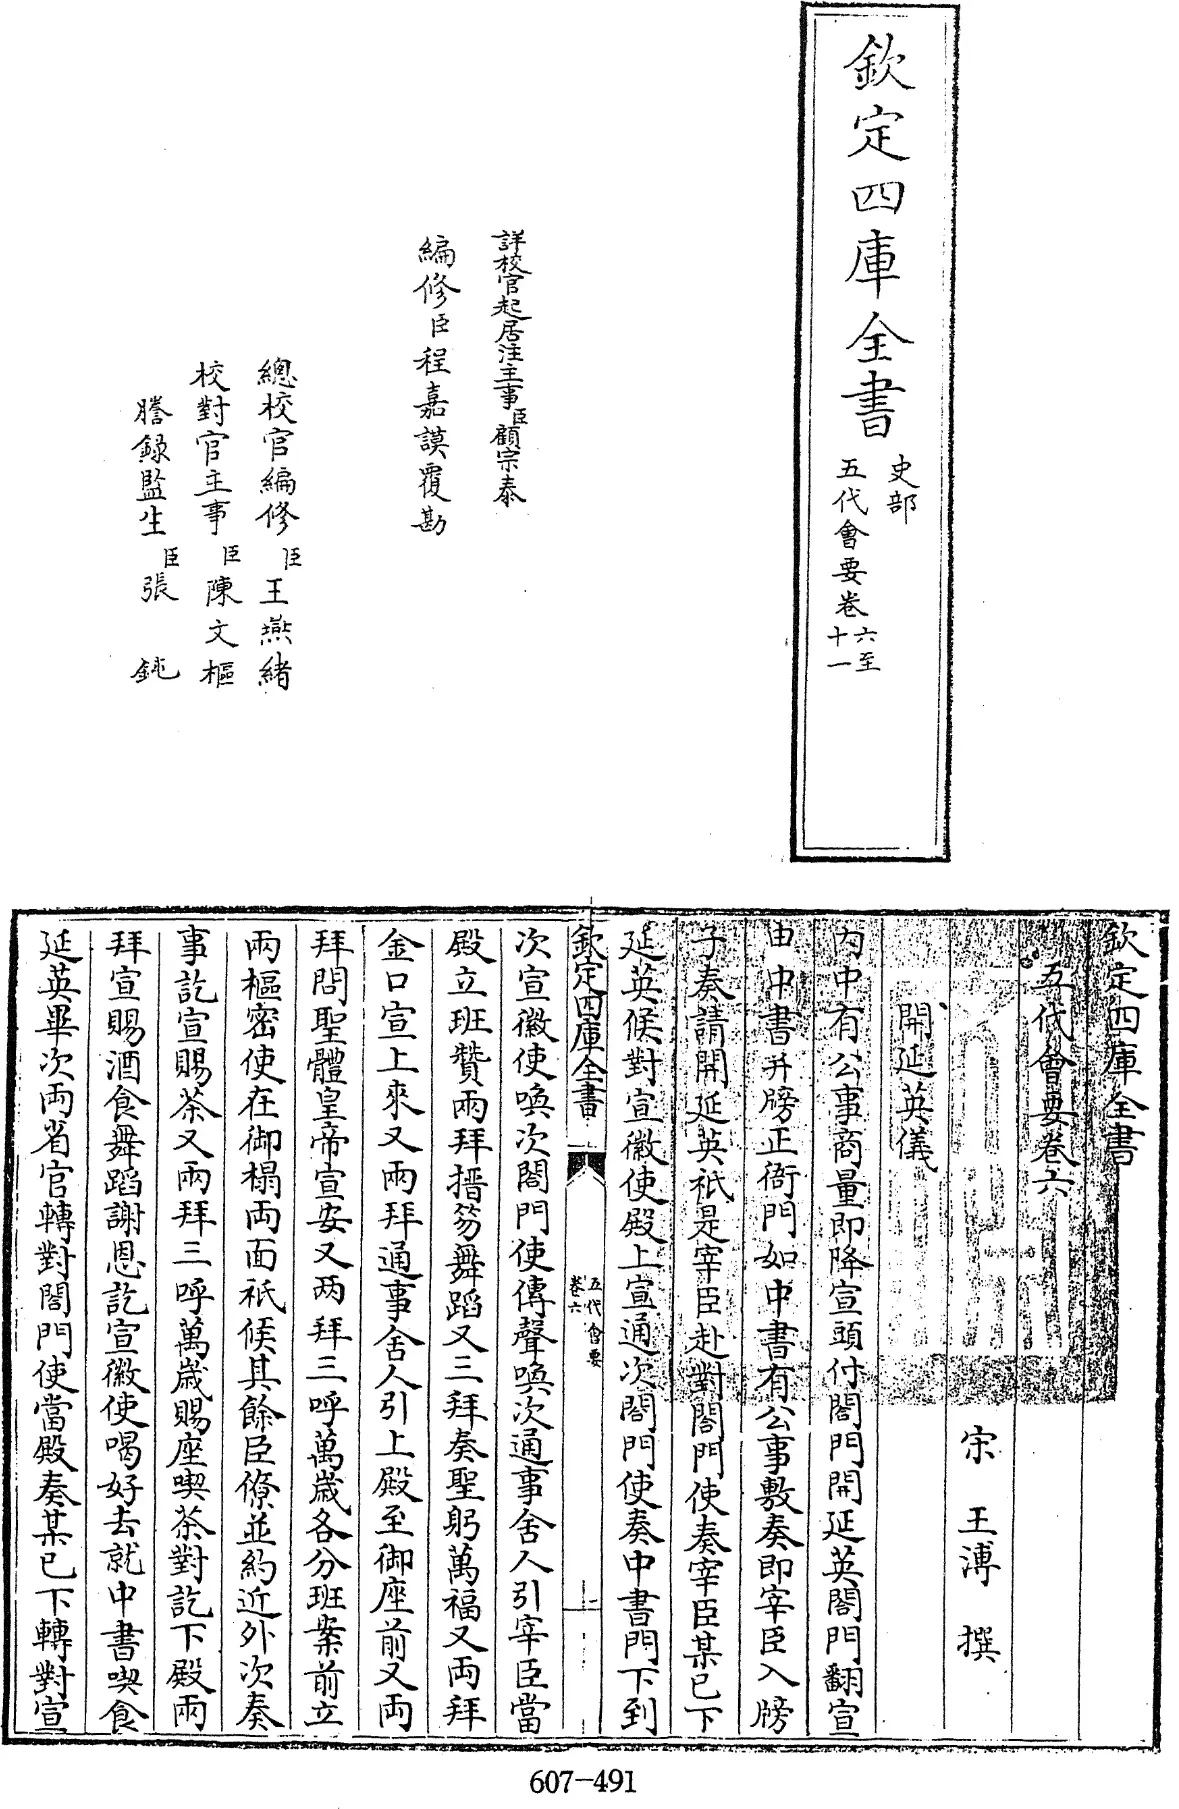 欽定四庫全書
史部
五代會要卷六至十一
詳校官起居注主事臣顧宗泰
編修臣程嘉謨覆勘
總校官編修臣王燕緒
校對官主事臣陳文樞
謄錄監生臣張鈍
欽定四庫全書
五代會要卷六
宋王溥撰
開延英儀
內中有公事商量即降宣頭付閣門開延英閣門翻宣
由中書并牓正衙門如中書有公事敷奏即宰臣入牓
子奏請開延英祇是宰臣赴對閣門使奏宰臣某已下
延英候對宣徽使殿上宣通次閣門使奏中書門下到
欽定四庫全書
五代會要
卷六
一
次宣徽使喚次閣門使傳聲喚次通事舍人引宰臣當
殿立班贊兩拜搢笏舞蹈又三拜奏聖躬萬福又兩拜
金口宣上來又兩拜通事舍人引上殿至御座前又兩
拜問聖體皇帝宣安又两拜三呼萬歲各分班案前立
兩樞密使在御榻兩面祇候其餘臣僚並約近外次奏
事訖宣賜茶又兩拜三呼萬歲賜座喫茶對訖下殿兩
拜宣賜酒食舞蹈謝恩訖宣徽使喝好去就中書喫食
延英畢次兩省官轉對閣門使當殿奏某已下轉對宣
607-491